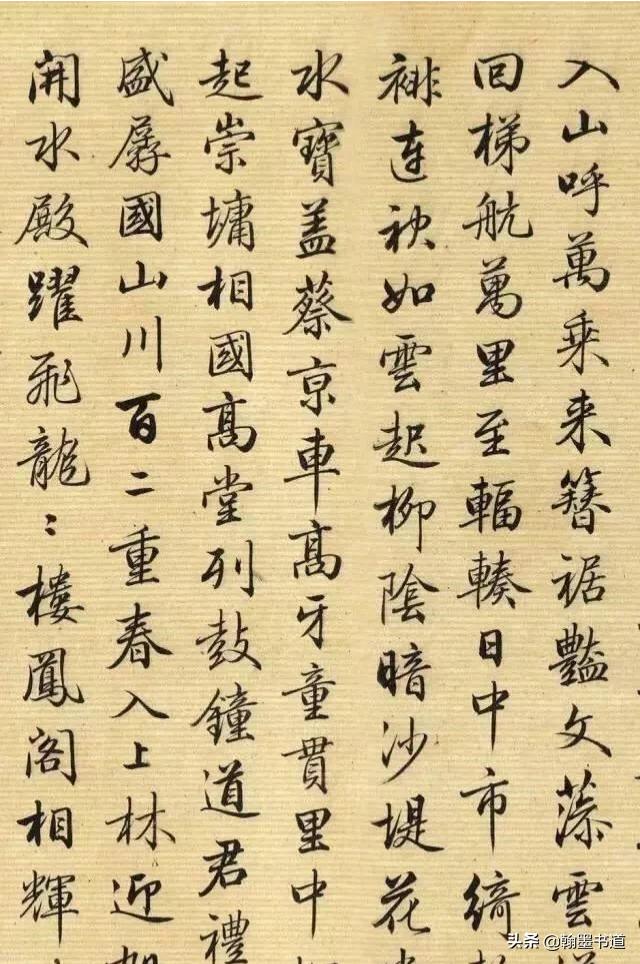 入山呼萬乘来簪裾豔文藻雲
回梯航萬里至輻輳日中市綺
裶連袂如雲起柳陰暗沙堤花
水寶蓋蔡京車高牙童貫里中
起崇墉相國高堂列鼓鐘道君禮
盛孱國山川百二重春入上林迎
開水殿躍飛龍〻樓鳳閣相輝
头条 @翰墨书道